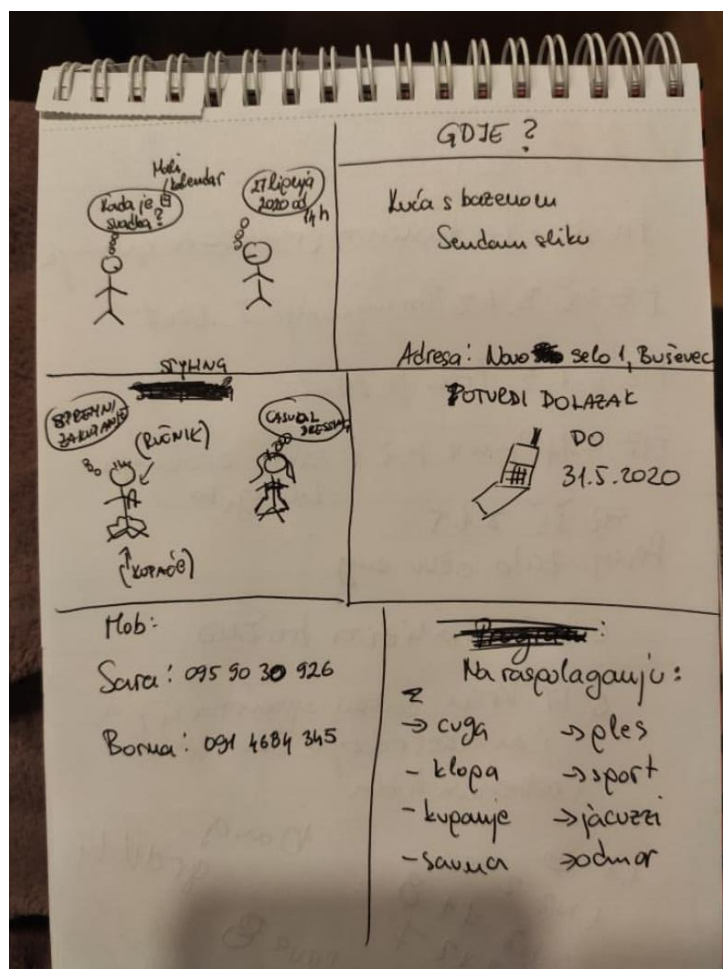 Mali
kalendar
Kada je
svadba?
27 lipnja
2020 od
14h
GDJE?
Kuća s bazenom
Sendam sliku
Adresa: Novo selo 1, Buševec
STYLING
SPREMNI
ZA KUPANJE
(RUČNIK)
(KUPAĆE)
CASUAL
DRESSING
POTVRDI DOLAZAK
DO
31.5.2020
Mob:
Sara: 095 90 30 926
Borna: 091 4684 345
Program:
Na raspolaganju:
→ cuga
- klopa
- kupanje
- sauna
→ ples
→ sport
→ jacuzzi
→ odmor